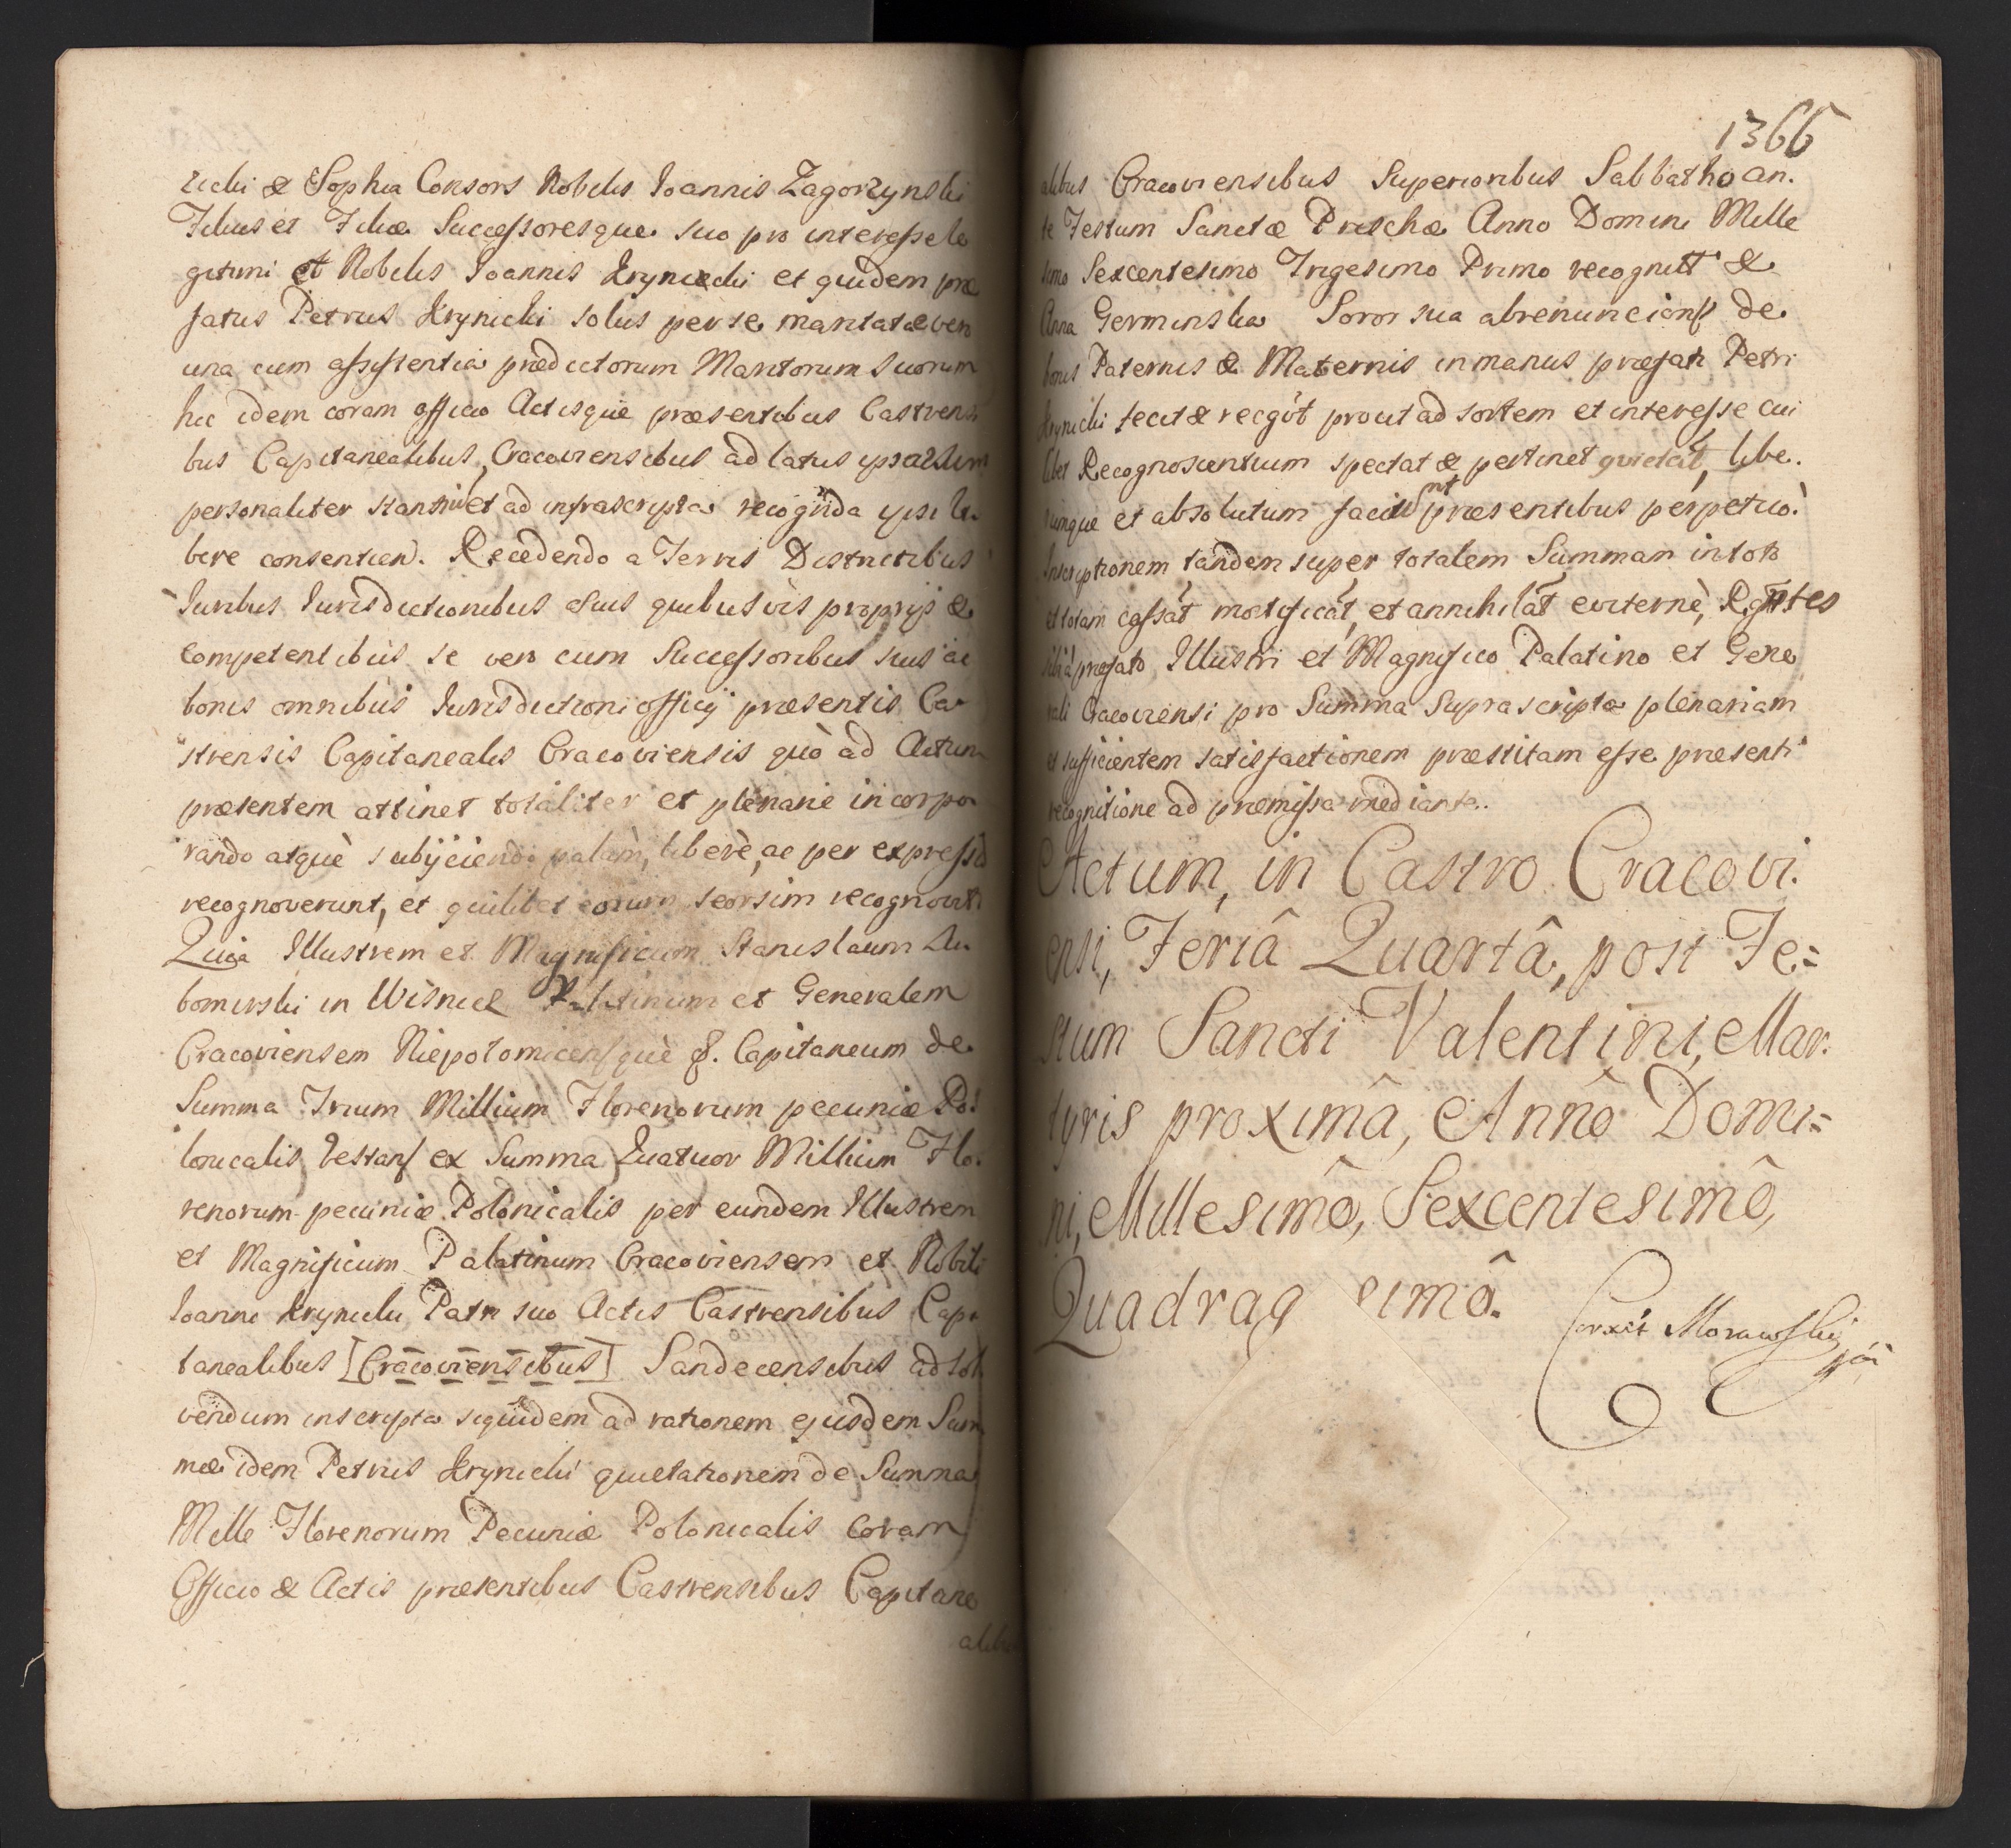 zicki & Sophia Consors Nobilis Ioannis Zagorzynski
Filius et Filiæ Successoresque suo pro interesse le
gitimi et Nobilis Ioannis Krynicki et quidem præ
fatus Petrus Krynicki solus per se maritatæ vero
una cum assistentia prædictorum Maritorum suorum
hic idem coram officio Actisque præsentibus Castrensi
bus Capitanealibus Cracoviensibus ad latus ipsarum
personaliter stantium et ad infrascripta recognda ipsi li.
bere consentien. Recedendo a Terris Districtibus
Iuribus Iurisdictionibus suis quibusvis proprijs &
competentibus se vero cum Successoribus suis ac
bonis omnibus Iurisdictioni officij præsentis Ca
strensis Capitanealis Cracoviensis quò ad Actum
præsentem attinet totaliter et plenarie incorpo
rando atquè subijciendo palàm, liberè, ac per expressū
recognoverunt, et quilibet eorum seorsim recognovit
Quia Illustrem et Magnificum Stanislaum Lu.
bomirski in Wisnicz Palatinum et Generalem
Cracoviensem Niepolomicensquè &. Capitaneum de
Summa Trium Millium Florenorum pecuniæ Po.
lonicalis restans ex Summa Quatuor Millium Flo.
renorum pecuniæ Polonicalis per eundem Illustrem
et Magnificum Palatinum Cracoviensem et Nobili
Ioanni Krynicki Patri suo Actis Castrensibus Capi
tanealibus [Cracoviensibus] Sandecensibus ad sol
vendum inscripta siquidem ad rationem ejusdem Sum
mæ idem Petrus Krynicki quietationem de Summa
Mille Florenorum Pecuniæ Polonicalis coram
Officio & Actis præsentibus Castrensibus Capitane
alibus
1366
alibus Cracoviensibus Superioribus Sabbatho an.
te Festum Sanctæ Priscæ Anno Domini Mille
simo Sexcentesimo Trigesimo Primo recognitt &
Anna Germinska Soror sua abrenuncions de
bonis Paternis & Maternis in manus præfati Petri
Krynicki fecit & recgōt prout ad sortem et interesse cui
libet Recognoscentium spectat & pertinet quietat, libe.
rumque et absolutum faciunt præsentibus perpetuò.
Inscriptionem tandem super totalem Summam in toto
et totam cassāt mortificāt, et annihilāt eviternè, Rgntes
sibi à præfato Illustri et Magnifico Palatino et Gene
rali Cracoviensi pro Summa Suprascripta plenariam
et sufficientem satisfactionem præstitam esse præsenti
recognitione ad præmissa mediante..
Actum, in Castro Cracovi.
ensi, Feriâ Quartâ, post Fe=
stum Sancti Valentini, Mar.
tyris proximâ, Annô Domi=
ni, Millesimô, Sexcentesimô,
Quadrag simô.
Corxit Morawski